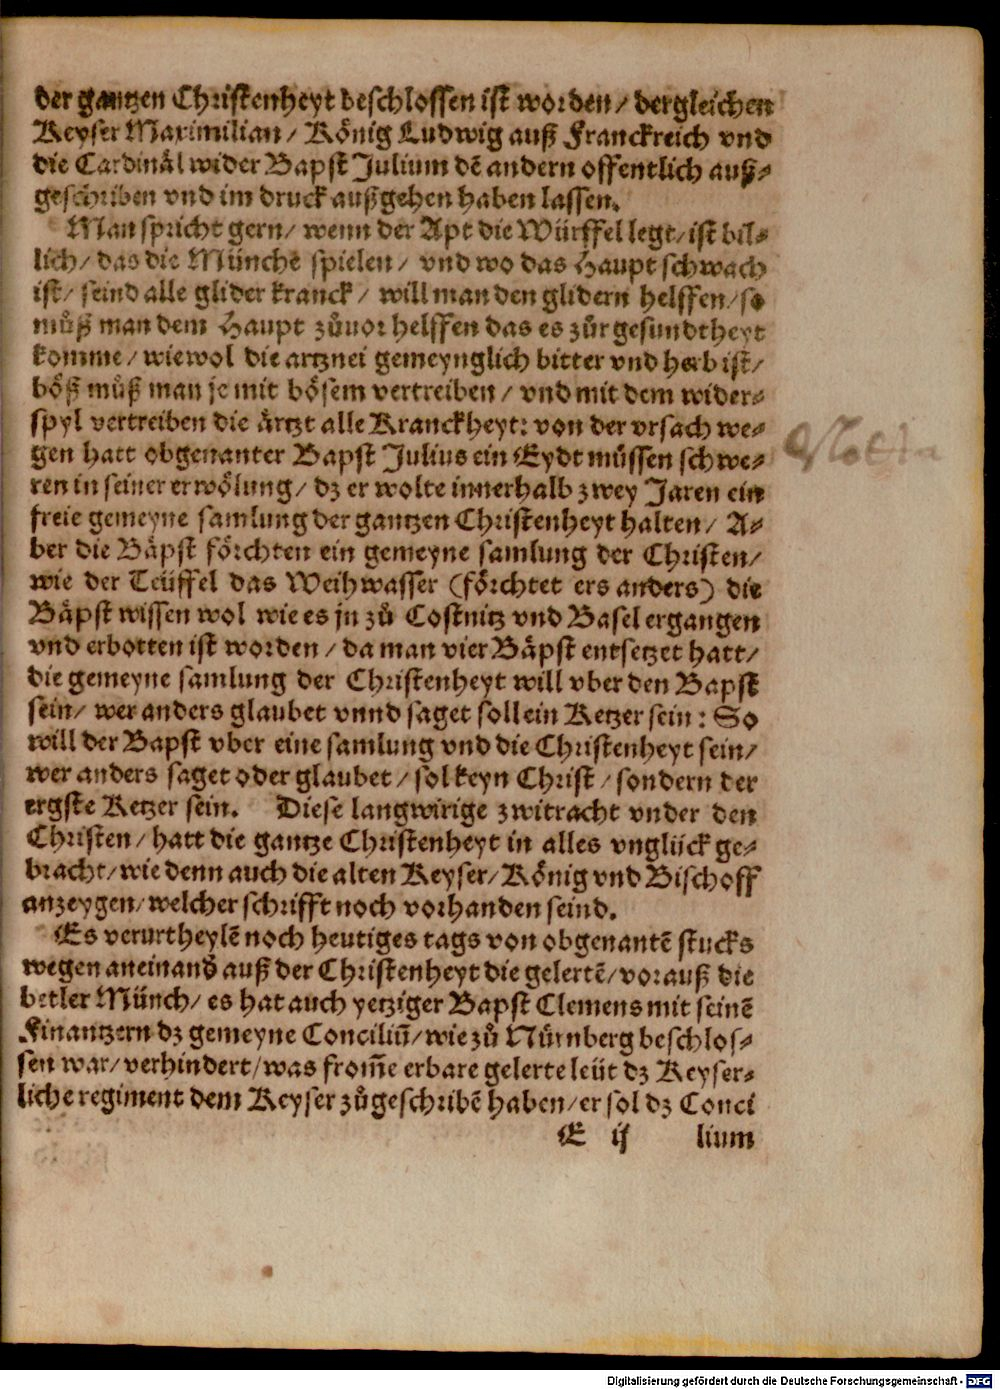 der gantzen Christenheyt beschlossen ist worden / dergleichen
Keyser Maximilian / König Ludwig auß Franckreich vnd
die Cardinål wider Bapst Julium dē andern offentlich auß-
geschriben vnd im druck außgehen haben lassen.
Man spricht gern / wenn der Apt die Würffel legt / ist bil-
lich / das die Münchē spielen / vnd wo das Haupt schwach
ist / seind alle glider kranck / will man den glidern helffen / so
můß man dem Haupt zůuor helffen das es zůr gesundtheyt
komme / wiewol die artznei gemeynglich bitter vnd herb ist /
böß můß man je mit bösem vertreiben / vnd mit dem wider-
spyl vertreiben die ärtzt alle Kranckheyt: von der vrsach we-
gen hatt obgenanter Bapst Julius ein Eydt müssen schwe-
ren in seiner erwölung / dz er wolte innerhalb zwey Jaren ein
freie gemeyne samlung der gantzen Christenheyt halten / A-
ber die Bäpst förchten ein gemeyne samlung der Christen /
wie der Teüffel das Weihwasser (förchtet ers anders) die
Bäpst wissen wol wie es jn zů Costnitz vnd Basel ergangen
vnd erbotten ist worden / da man vier Bäpst entsetzet hatt /
die gemeyne samlung der Christenheyt will vber den Bapst
sein / wer anders glaubet vnnd saget soll ein Ketzer sein: So
will der Bapst vber eine samlung vnd die Christenheyt sein /
wer anders saget oder glaubet / sol keyn Christ / sondern der
ergste Ketzer sein. Diese langwirige zwitracht vnder den
Christen / hatt die gantze Christenheyt in alles vnglück ge-
bracht / wie denn auch die alten Keyser / König vnd Bischoff
anzeygen / welcher schrifft noch vorhanden seind.
Es verurtheylē noch heutiges tags von obgenantē stucks
wegen aneinand̃ auß der Christenheyt die gelertē / vorauß die
betler Münch / es hat auch yetziger Bapst Clemens mit seinē
Finantzern dz gemeyne Conciliū / wie zů Nürnberg beschlos-
sen war / verhindert / was from̄e erbare gelerte leüt dz Keyser-
liche regiment dem Keyser zůgeschribē haben / er sol dz Conci
E ij lium
Notta
Digitalisierung gefördert durch die Deutsche Forschungsgemeinschaft - DFG